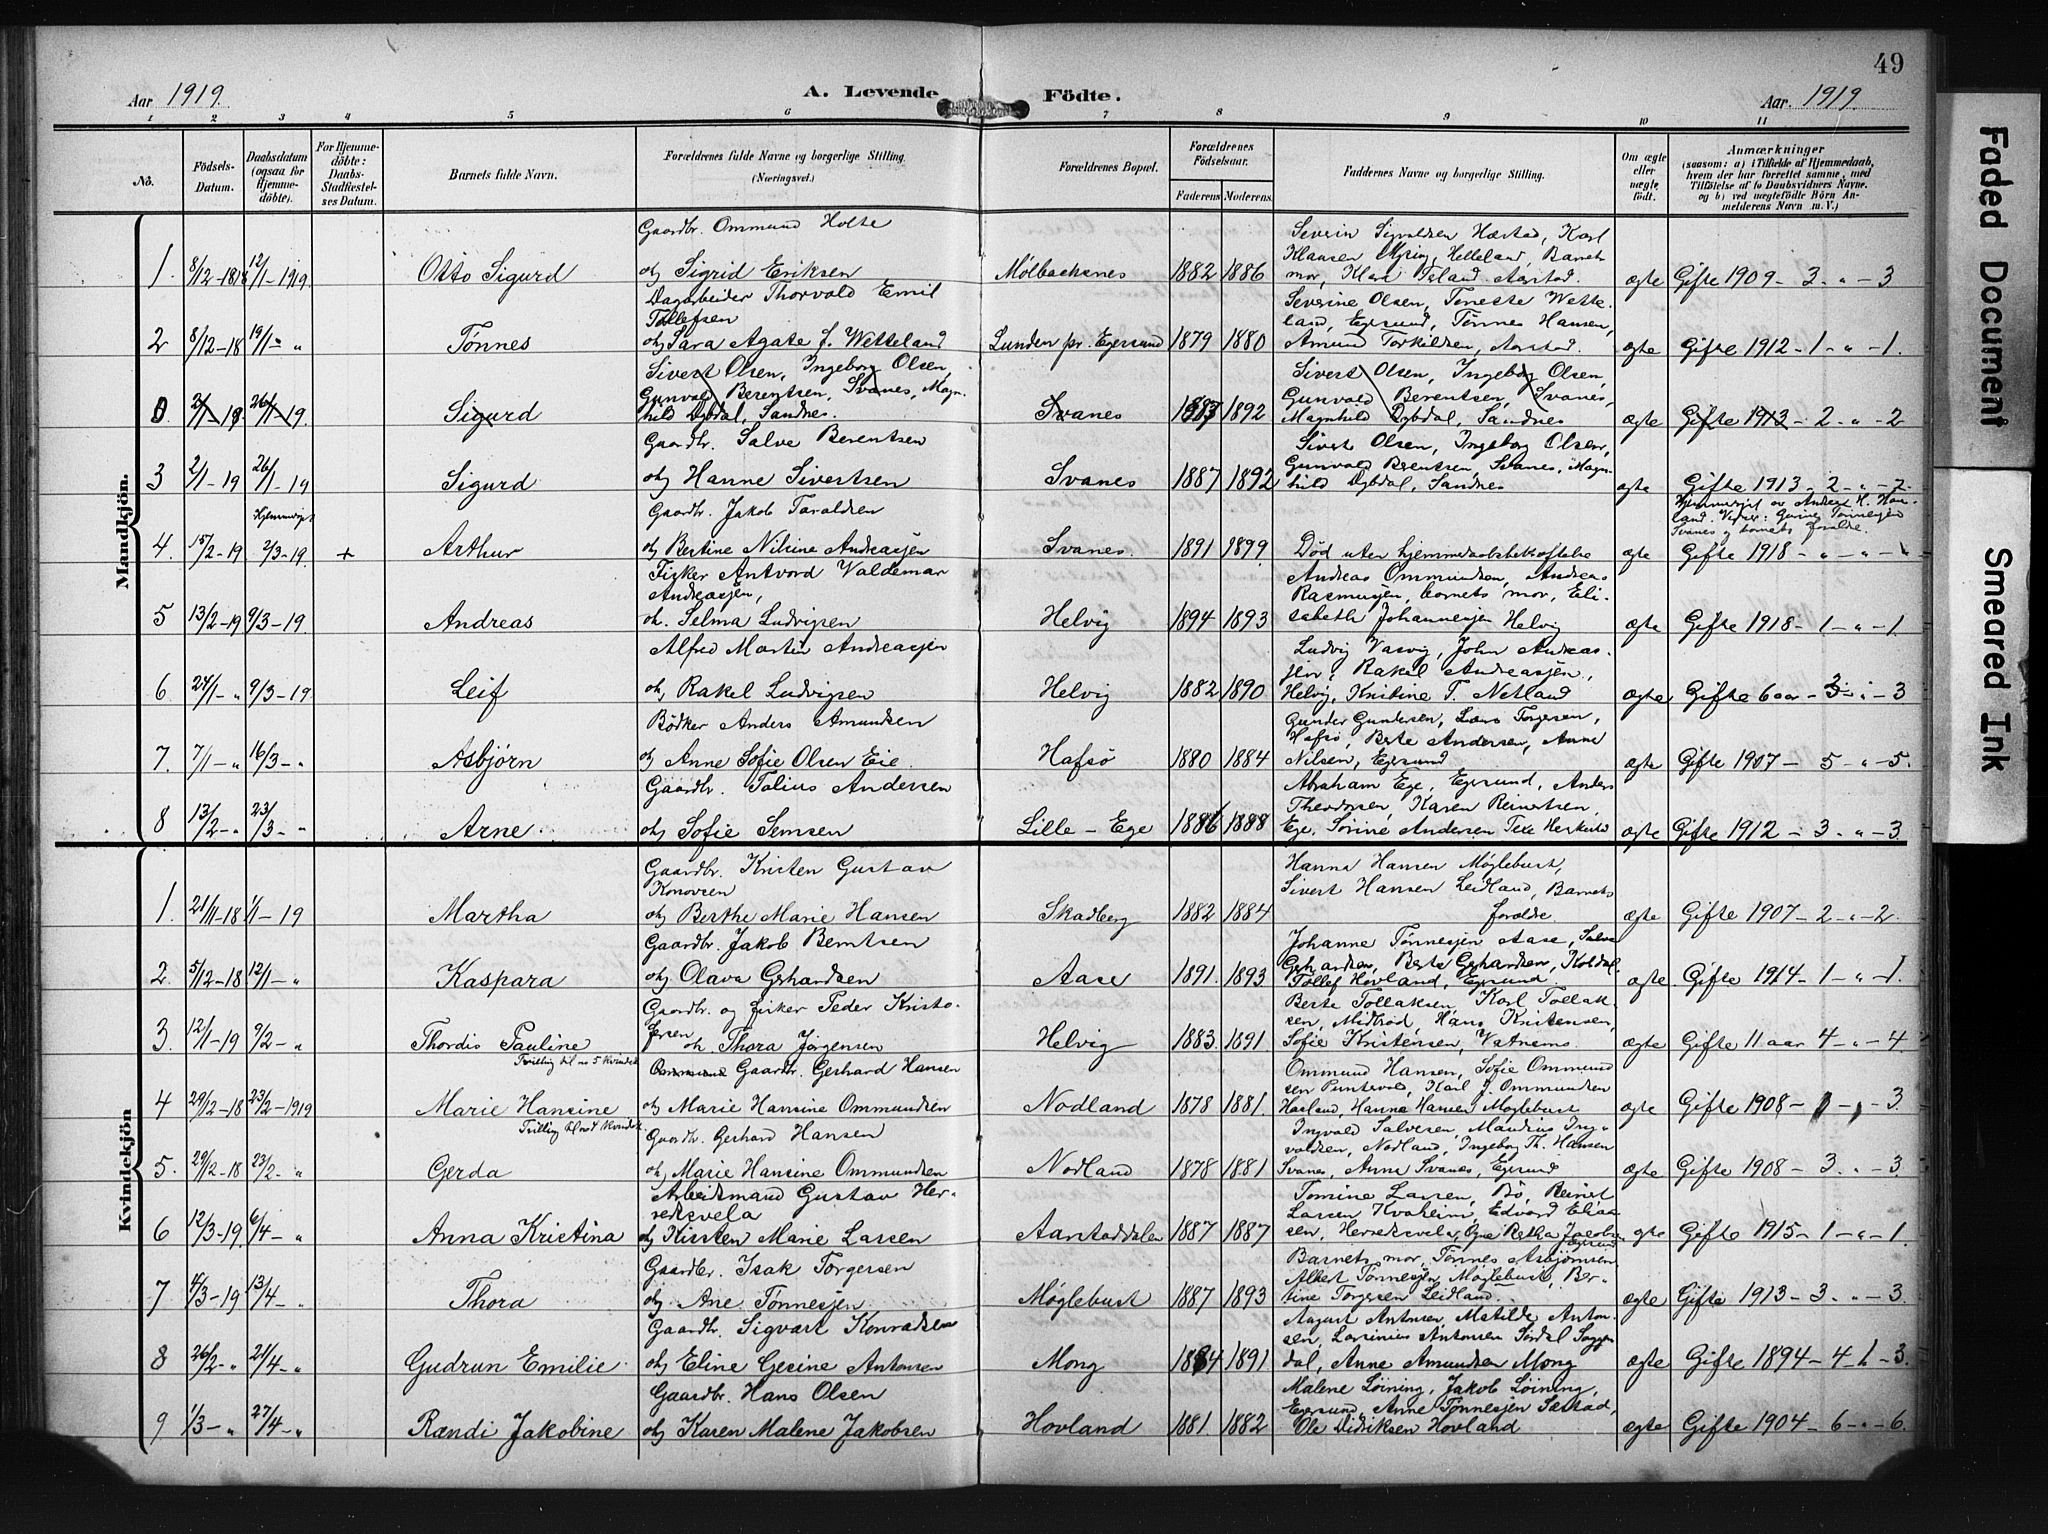 49
Aar 1919. A. Levende Födte. Aar 1919.
1 2 3 4 5 6 7 8 9 10 11
No. Födsels-Datum. Daabsdatum (ogsaa for Hjemmedöbte). For Hjemmedöbte: Daabs-Stadfæstelses Datum. Barnets fulde Navn. Forældrenes fulde Navne og borgerlige Stilling. (Næringsvei.) Forældrenes Bopæl. Forældrenes Födselsaar. Faderens Moderens Faddernes Navne og borgerlige Stilling. Om ægte eller uægte födt. Anmærkninger (saasom: a) i Tilfælde af Hjemmedaab, hvem der har forrettet samme, med Tilföielse af to Daabsvidners Navne. og b) ved uægtefödte Börn Anmelderens Navn m. V.)
Mandkjön.
Gaardbr. Ommund Holte
Severin Sigvaldsen Hæstad, Karl
Klausen Helleland, Barnets
1. 8/12-1818 12/1-1919. Otto Sigurd og Sigrid Eriksen Mølbachsnes 1882 1886 mor, Karl Aarstad. ægte Gifte 1909 - 3 " - 3
Dagarbeider Thorvald Emil
Severine Olsen, Toneste Wette-
Tollefsen
land, Egersund, Tønnes Hansen,
2 8/12-18 19/1- " Tønnes og Sara Agate f. Wetteland Lunden pr. Egersund 1879 1880 Amund Torkildsen, Aarstad. ægte Gifte 1912 - 1 - " - 1.
Sivert Olsen, Ingeborg Olsen, Sivert Olsen, Ingeborg Olsen,
Gunvald Berentsen, Svanes, Magn- Gunvald Berentsen, Svanes,
2/1-19. 26/1-19. Sigurd hild Dybdal, Sandnes. Svanes 1892 Magnhild Dybdal, Sandnes ægte Gifte 1913 - 2 - " - 2
Gaardbr. Salve Berentsen Sivert Olsen, Ingeborg Olsen,
Gunvald Berentsen, Svanes, Magn-
3 2/1-19 26/1-19 Sigurd og Hanne Sivertsen Svanes 1887 1892 hild Dybdal, Sandnes ægte Gifte 1913 - 2 - " - 2
Gaardbr. Jakob Taraldsen
Hjemmedøpt av Andreas H. Hov-
land. Vidner: Tønnesen
Svanes og barnets forældre.
4. 15/2-19. 2/3-19. + Arthur og Bertine Nilsine Andreassen Svanes 1891 1899 Død uten hjemmedaabsbekræftelse ægte Gifte 1918 - " - " -
Fisker Antvord Valdemar Andreas Ommundsen, Andreas
Andreassen, Rasmussen, barnets mor, Eli-
5 13/2-19 9/3-19. Andreas og Selma Ludvigsen Helvig 1894 1893 sabeth Johannessen Helvig ægte Gifte 1918 - 1 - " - 1.
Alfred Martin Andreassen Ludvig Vasvig, John Andreas-
sen, Rakel Andreassen,
6 24/1- " 9/3-19. Leif og Rakel Ludvigsen Helvig 1882 1890 Helvig, Kristine T. Netland ægte Gifte 6 aar - 3 - " - 3
Bödker Anders Amundsen Gunder Gundersen, Lars Torgersen,
Hafsö, Berte Andersen, Anne
7. 7/1- " 16/3- " Asbjørn og Anne Sofie Olsen Eie. Hafsö 1880 1884 Nilsen, Egersund ægte Gifte 1907 - 5 - " - 5.
Gaardbr. Tolius Andersen Abraham Ege, Egersund, Anders
Theodorsen, Karen Reinertsen,
8 13/2- " 23/3- " Arne og Sofie Semsen Lille-Ege 1886 1888 Ege, Sørine Andersen ægte Gifte 1912 - 3 " - 3.
Kvindekjön
Gaardbr. Kristen Gustav Hanna Hansen Møglebust,
Konovsen Sivert Hansen Leidland, Barnets
1. 21/11-18 1/1-19 Martha og Berthe Marie Hansen Skadberg 1882 1884 forældre. ægte Gifte 1907 - 2 - " - 2.
Gaardbr. Jakob Berntsen Johanne Tønnessen Aase, Salve
Gerhardsen, Berte Gerhardsen, Koldal,
2 5/12-18 12/1- " Kaspara og Olava Gerhardsen Aase 1891. 1893 Tollef Hovland, Egersund. ægte. Gifte 1914 - 1 - " - 1.
Gaardbr. og fisker Peder Kristo- Berte Tollaksen, Karl Tollak-
fersen sen, Midbrød, Hans Kristensen,
3. 12/1-19 9/2- " Thordis Pauline og Thora Jörgensen Helvig 1883. 1891 Sofie Kristensen, Vatnemo. ægte Gifte 11 aar 4 - " - 4.
Tvilling til no 5 Kvindek. Gaardbr. Gerhard Hansen Ommund Hansen, Sofie Ommund
sen Puntervol, Karl J. Ommundsen
4 29/12-18 23/2-1919 Marie Hansine og Marie Hansine Ommundsen Nodland 1878 1881. Havland, Hanna Hansen Møglebust ægte Gifte 1908 - 3
Tvilling til no 4 Kvindek. Gaardbr. Gerhard Hansen Ingvald Salvesen, Maudius Ing-
valdsen, Nodland, Ingeborg Th. Hansen
5. 29/12-18 23/2- " Gerda og Marie Hansine Ommundsen Nodland 1878 1881 Svanes, Anne Svanes, Egersund ægte Gifte 1908 - 3. " - 3.
Arbeidsmand Gustav Her- Tomine Larsen, Bö, Reinert
redsvela Larsen Kvaheim, Edvard Elias-
6 12/3-19. 6/4- " Anna Kristina og Kirsten Marie Larsen Aarstaddalen 1887 1887 sen, Herredsvela, Retha Jacobsen Egersund ægte Gifte 1915 - 1 - " - 1.
Gaardbr. Isak Torgersen Barnets mor, Tønnes Asbjørnsen
Albert Tønnessen, Møglebust, Ber-
7 4/3-19 13/4- " Thora og Ane Tønnessen Møglebust 1887 1893 tine Torgersen Leidland. ægte Gifte 1913 - 3. " - 3.
Gaardbr. Sigvart Konradsen August Antonsen, Matilde Anton-
sen, Larsinius Antonsen Sørdal Soggen-
8 26/2- " 21/4- " Gudrun Emilie og Eline Gesine Antonsen Mong 1884 1891 dal, Anne Amundsen Mong ægte Gifte 1894 - 4 1 - 3.
Gaardbr. Hans Olsen Malene Löining, Jakob Löining,
Egersund, Anne Tønnessen Sæstad,
9 1/3- " 27/4- " Randi Jakobine og Karen Malene Jakobsen Hovland 1881. 1882 Ole Didriksen Hovland ægte Gifte 1904 - 6 - " - 6.
Faded Document
Smeared Ink